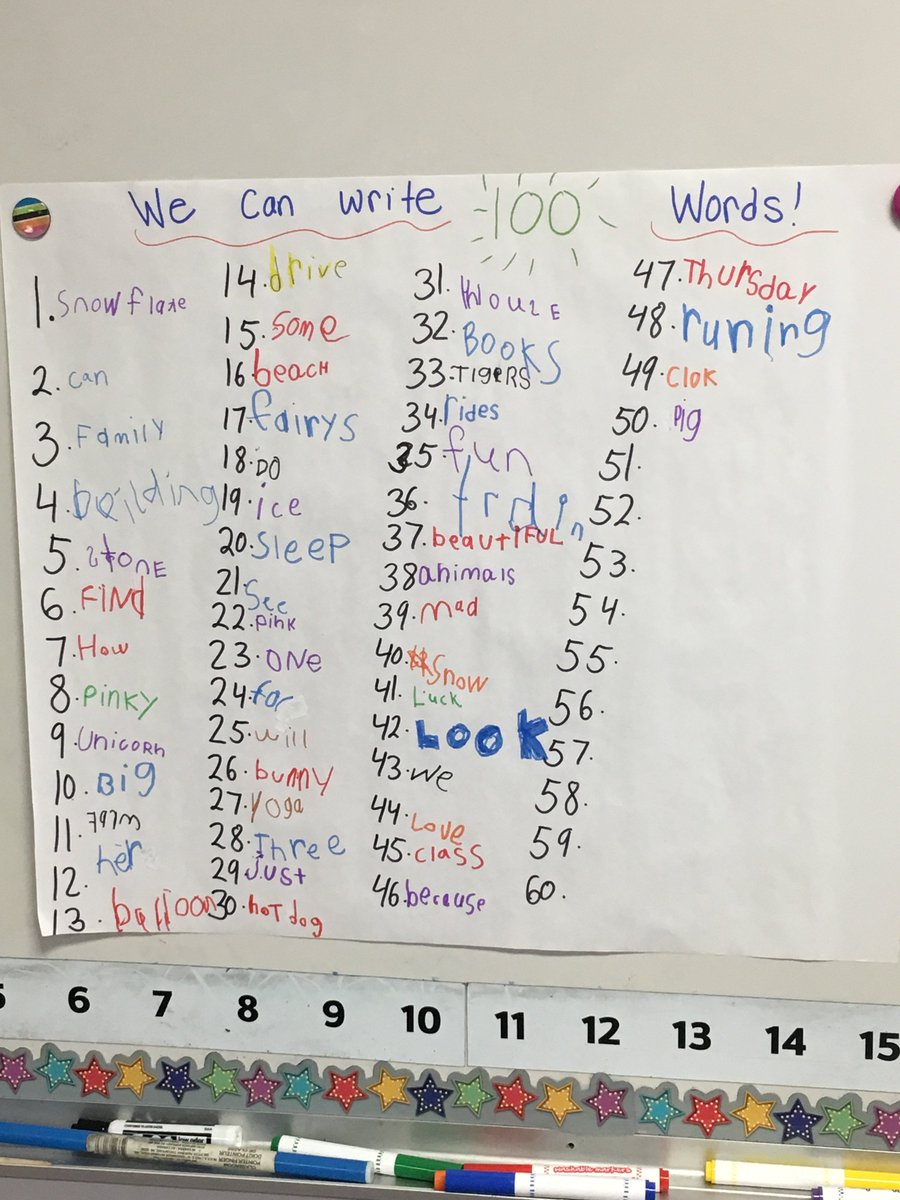 We Can write 100 Words!
1. Snowflake
2. can
3. Family
4. building
5. stone
6. FiNd
7. How
8. Pinky
9. Unicorn
10. Big
11.
12. her
13. balloon
14. drive
15. Some
16 beach
17. fairys
18. DO
19. ice
20. SleeP
21. See
22. pink
23. ONe
24. for
25. will
26. bunny
27. Yoga
28. Three
29 just
30. hoT dog
31.
32. BOOKS
33. TIgeRS
34. rides
35 fun
36.
37. beautiFUL
38 animals
39. mad
40. Snow
41. Luck
42. LOOk
43. we
44. Love
45. class
46. because
47. Thursday
48. runing
49. Clok
50. Pig
51.
52.
53.
54.
55.
56.
57.
58.
59.
60.
5 6 7 8 9 10 11 12 13 14 15